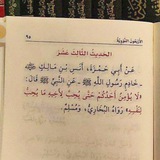 الأربعون النووية
٩٥
الحديث الثالث عشر
عَنْ أَبِي حَمْزَةَ، أَنَسِ بْنِ مَالِكٍ ﷺ
- خَادِمِ رَسُولِ اللَّهِ ﷺ - عَنِ النَّبِيِّ ﷺ قَالَ:
«لَا يُؤْمِنُ أَحَدُكُمْ حَتَّى يُحِبَّ لِأَخِيهِ مَا يُحِبُّ
لِنَفْسِهِ» رَوَاهُ الْبُخَارِيُّ، وَمُسْلِمٌ.